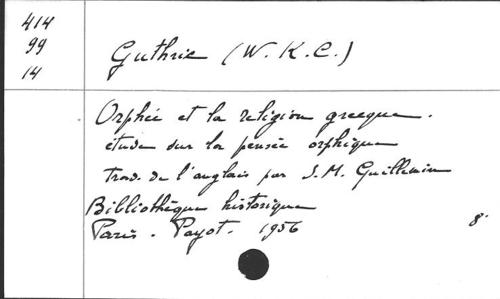 414
99
14
Guthrie (W. K. C.)
Orphée et la religion grecque.
étude sur la pensée orphique
trad. de l'anglais par S. M. Guillemin
Bibliothèque historique
Paris. Payot. 1956
8°